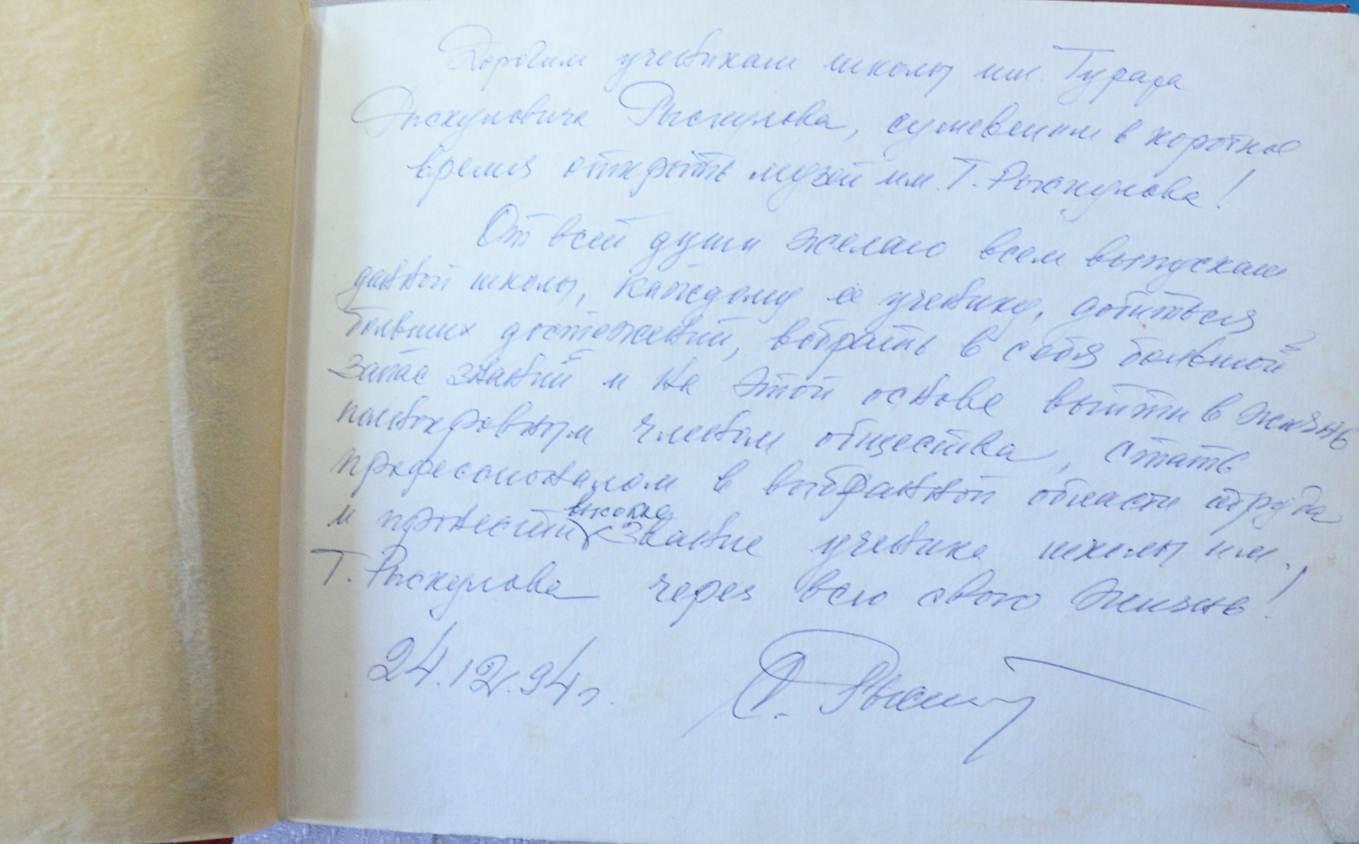 Дорогим ученикам школы им. Турара
Рыскуловича Рыскулова, сумевшим в короткое
время открыть музей им. Т. Рыскулова!
От всей души желаю всем выпускам
данной школы, каждому её ученику, добиться
больших достижений, вобрать в себя большой
запас знаний и на этой основе выйти в жизнь
полнокровным членом общества, стать
профессионалом в выбранной области труда
и пронести высокое звание ученика школы им.
Т. Рыскулова через всю свою жизнь!
24.12.94 г.